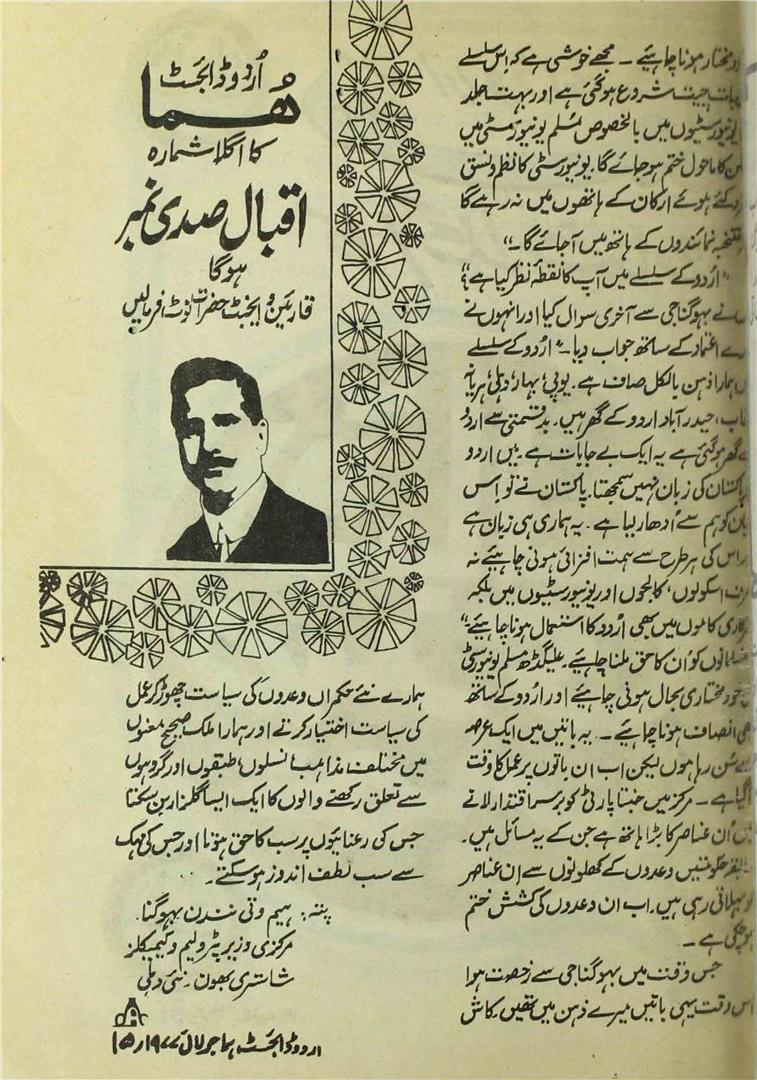 خود مختار ہونا چاہئیے ۔ مجھے خوشی ہے کہ اِس سلسلے
بات چیت شروع ہوگئی ہے اور بہت جلد
یونیورسٹیوں میں بالخصوص مُسلم یونیورسٹی میں
کا ماحول ختم ہو جائے گا۔ یونیورسٹی کا نظم و نسق
کئے ہوئے ارکان کے ہاتھوں میں نہ رہے گا
منتخبہ نمائندوں کے ہاتھ میں آجائے گا۔"
"اردو کے سلسلے میں آپ کا نقطۂ نظر کیا ہے؟
نے بہوگنا جی سے آخری سوال کیا اور انہوں نے
اعتماد کے ساتھ جواب دیا۔ "اردو کے سلسلے
ہمارا ذہن بالکل صاف ہے۔ یوپی، بہار، دہلی، ہریانہ
حیدر آباد اردو کے گھر ہیں۔ بدقسمتی سے اردو
گھر ہوگئی ہے یہ ایک بے جا بات ہے۔ میں اردو
پاکستان کی زبان نہیں سمجھتا۔ پاکستان نے تو اِس
کو ہم سے اُدھار لیا ہے۔ یہ ہماری ہی زبان ہے
اس کی ہر طرح سے ہمت افزائی ہونی چاہیئے نہ
صرف اسکولوں، کالجوں اور یونیورسٹیوں میں بلکہ
سرکاری کاموں میں بھی اُردو کا استعمال ہونا چاہیئے"
مسلمانوں کو اُن کا حق ملنا چاہیے۔ علیگڈھ مسلم یونیورسٹی
خود مختاری بحال ہونی چاہیئے اور اردو کے ساتھ
انصاف ہونا چاہیے ۔ یہ باتیں میں ایک عرصہ
سے سُن رہا ہوں لیکن اب ان باتوں پر عمل کا وقت
آگیا ہے ۔ مرکز میں جنتا پارٹی کو برسراقتدار لانے
میں اُن عناصر کا بڑا ہاتھ ہے جن کے یہ مسائل ہیں۔
حکومتیں وعدوں کے کھلونوں سے اِن عناصر
کو بہلاتی رہی ہیں۔ اب ان وعدوں کی کشش ختم
ہو چکی ہے ۔
جس وقت میں بہوگنا جی سے رخصت ہوا
اس وقت یہی باتیں میرے ذہن میں تھیں۔ کاش
اُردو ڈائجسٹ
ھُما
کا اگلا شمارہ
اقبال صدی نمبر
ہوگا
قارئین و ایجنٹ حضرات نوٹ فرمالیں
ہمارے نئے حکمراں وعدوں کی سیاست چھوڑ کر عمل
کی سیاست اختیار کرتے اور ہمارا ملک صحیح معنوں
میں مختلف مذاہب، نسلوں، طبقوں اور گروہوں
سے تعلق رکھنے والوں کا ایک ایسا گلزار بن سکتا
جس کی رعنائیوں پر سب کا حق ہوتا اور جس کی مہک
سے سب لطف اندوز ہو سکتے۔
پتہ: ہیم وتی نندن بہوگنا۔
مرکزی وزیر پٹرولیم و کیمیکلز
شاستری بھون۔ نئی دہلی
اردو ڈائجسٹ ہما جولائی ۱۹۷۷ء ۱۵